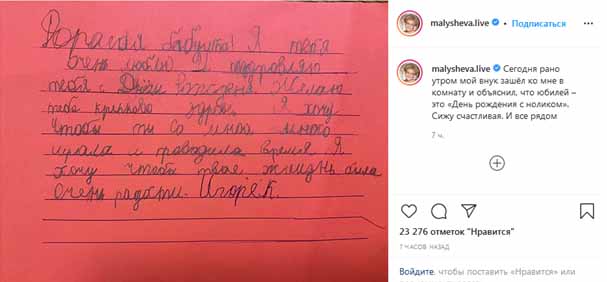 Дорагая бабушка! Я тебя
очень люблю и поздровляю
тебя с Днём Рождения. Желаю
тебе крепково здровя. Я хочу
чтобы ты со мной много
играла и праводила время. Я
хочу чтобы твая жизнь была
очень радости. ИгорёК.
malysheva.live • Подписаться
malysheva.live Сегодня рано
утром мой внук зашёл ко мне в
комнату и объяснил, что юбилей –
это «День рождения с ноликом».
Сижу счастливая. И все рядом
7 ч.
23 276 отметок "Нравится"
7 ЧАСОВ НАЗАД
Войдите, чтобы поставить «Нравится» или